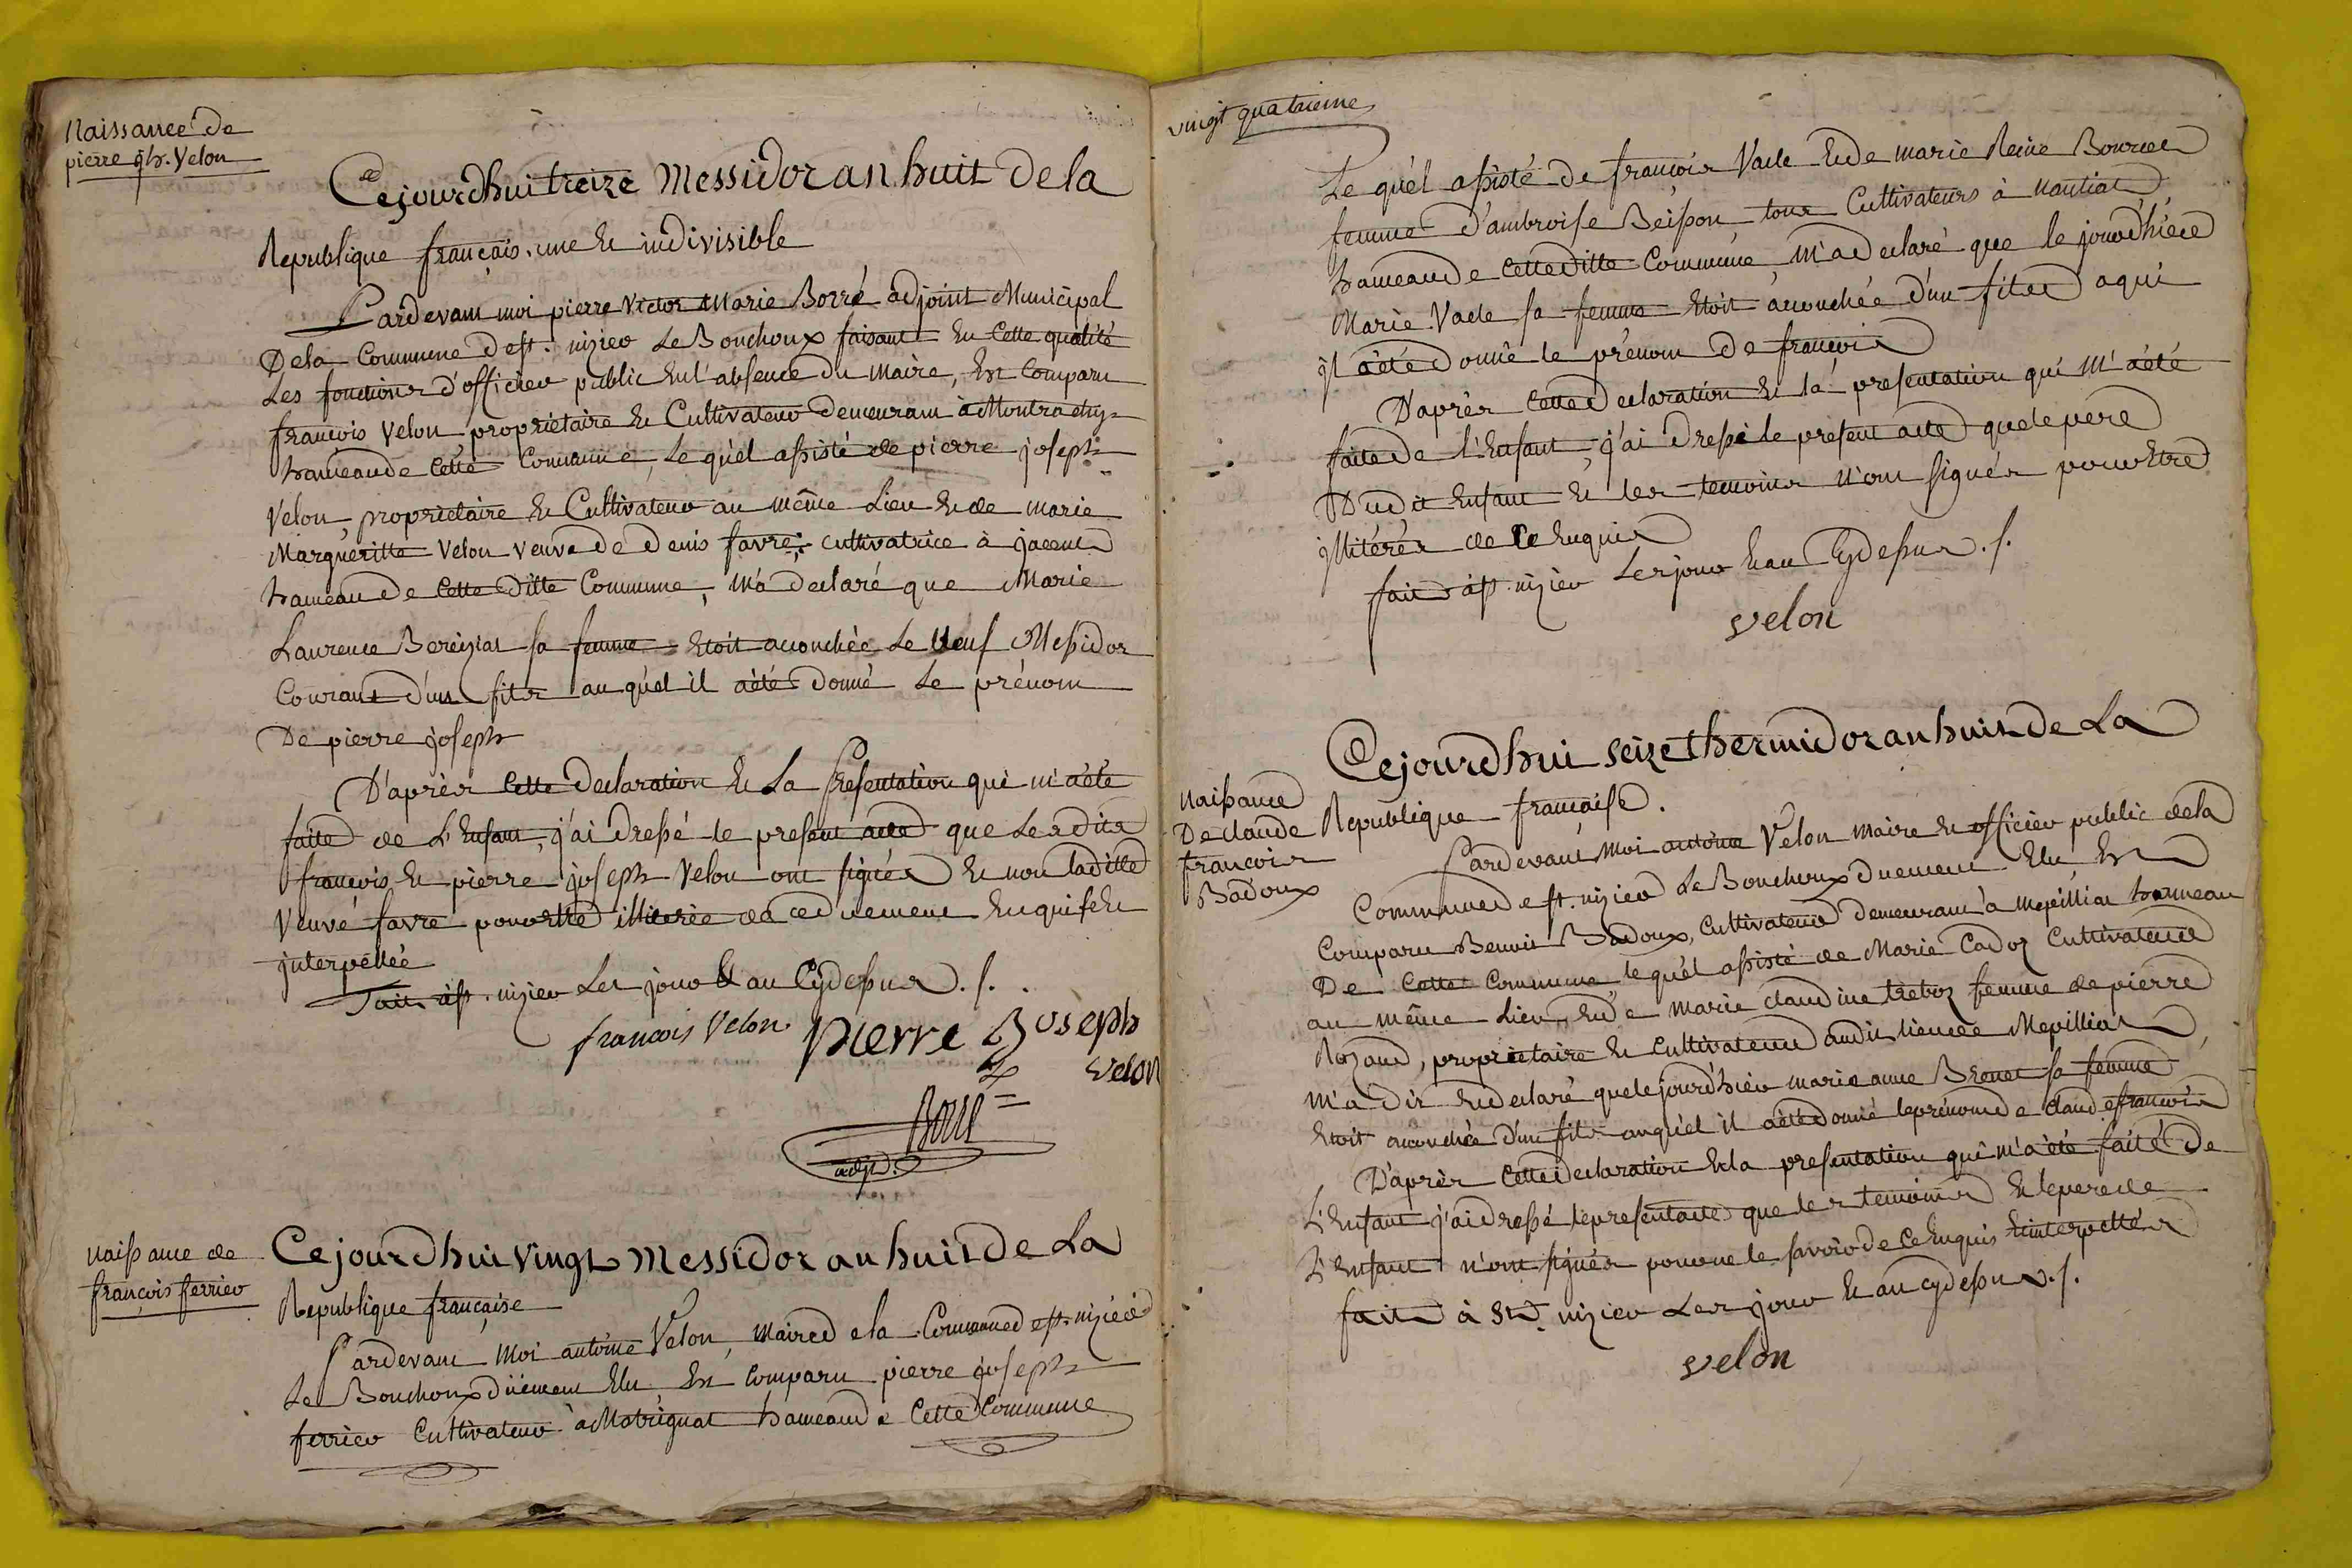 Naissance de
pierre jh. Velon
Cejourdhui treize Messidor an huit de la
Republique français. une et indivisible
Pardevant moi pierre Victor Marie Borré adjoint Municipal
De la Commune de st. nizier Le Bouchoux faisant En Cette qualité
Les fonctions d'officier public En l'absence du Maire, Est Comparu
françois Velon propriétaire Et Cultivateur demeurant à Montrachy
hameau de Cette Commune, Le quél assisté de pierre joseph
Velon propriétaire Et Cultivateur au même Lieu Et de marie
Margueritte Velon veuve de denis favre, cultivatrice à
hameau de Cette ditte Commune, m'a declaré que Marie
Laurence Bereiziat sa femme Etoit acouchée Le Neuf Messidor
Courant d'un fils au quél il a été donné Le prénom
De pierre joseph
D'après Cette Declaration Et La Presentation qui m'a été
faite de L'Enfant, j'ai dressé le present acte que Lesdits
françois Et pierre joseph Velon ont signés Et non laditte
Veuve favre pour être illiterée de ce duement Enquise Et
interpellée
Fait à st. nizier Les jour Et an Cydessus ./.
françois Velon pierre Joseph
velon
Borré
adjt.
Naissance de
françois ferrier
Cejourdhui vingt Messidor an huit de La
Republique française
Pardevant Moi antoine Velon, Maire de la Commune de st. nizier
Le Bouchoux dûement Elu Est Comparu pierre joseph
ferrier Cultivateur à Matrignat hameau de Cette Commune
vingt quatrieme
Le quél assisté de françois Vade Et de marie Reine Bourcet
femme d'ambroise Beisson tous Cultivateurs à Nantiat
hameau de Cette ditte Commune, m'a declaré que le jourd'hiér
Marie Vade sa femme Etoit acouchée d'un fils a qui
jl a été donné le prénom de françois
D'après Cette Declaration Et la presentation qui m'a été
faite de l'Enfant, j'ai dressé le present acte que le pere
Dudit Enfant Et les temoins n'ont signés pour Etre
jllitérés de Ce Enquis
fait à st. nizier Les jour Et an Cydessus ./.
velon
Naissance
De claude
françois
Badoux
Cejourdhui seize thermidor an huit de La
Republique française.
Pardevant Moi antoine Velon Maire Et officier public dela
Commune de st. nizier Le Bouchoux duement Elu, Est
Comparu Benoit Badoux, Cultivateur demeurant à Mepillat hameau
De Cette Commune, le quél assisté de Marie Cadoz Cultivateur
au même Lieu, Et de marie claudine treboz femme de pierre
Rozand, propriétaire Et Cultivateur audit lieu de Mepillat
M'a dit Et declaré que le jourd'hiér marie anne Brouet sa femme
Etoit acouchée d'un fils auquél il a été donné le prénom de claude françois
D'après Cette Declaration Et la presentation qui m'a été faite De
L'Enfant j'ai dressé le present acte que les temoins Et le pere de
L'Enfant n'ont signés pour ne le savoir de Ce Enquis Et interpellés
fait à St. nizier Les jour Et an cydessus ./.
velon